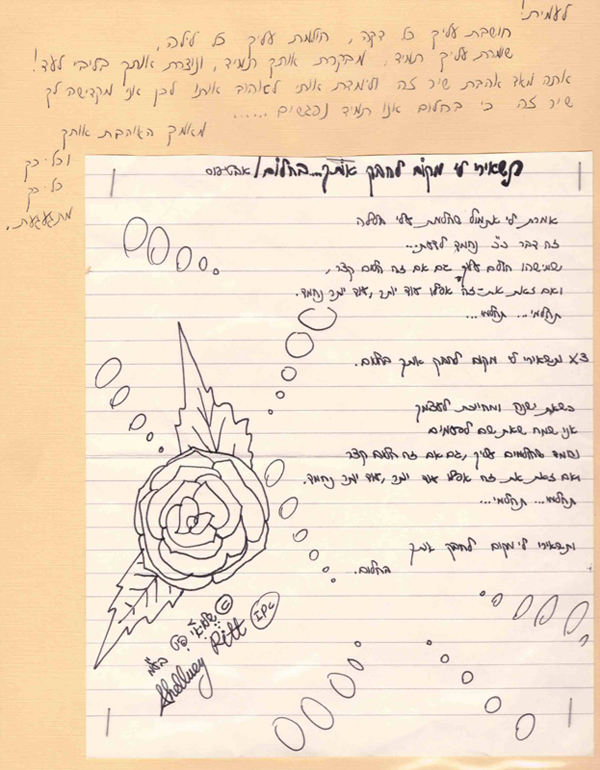 לעמית!
חושבת עליך כל דקה, חולמת עליך כל לילה,
שומרת עליך תמיד, מבקרת אותך תמיד, ונוצרת אותך בליבי לעד!
אתה מאד אהבת שיר זה ולימדת אותי לאהוב אותו לכן אני מקדישה לך
שיר זה כי בחלום אנו תמיד נפגשים......
מאמך האוהבת אותך
וכל-כך
כל-כך
מתגעגעת.
תשאירי לי מקום לחבק אותך...בחלום/אבטיפוס
אמרת לי אתמול שחלמת עלי הלילה
זה דבר כ"כ נחמד לדעת...
שמישהו חולם עליך גם אם זה חלום קצר,
ואם זאת את-זה אפילו עוד יותר, עוד יותר נחמד.
תחלמי... תחלמי...
x3 ותשאירי לי מקום לחבק אותך בחלום.
כשאת ישנה ומחייכת לעצמך
אני שמח שאת שם לפעמים
נחמד שחולמים עליך, גם אם זה חלום קצר
ואם זאת את זה אפילו עוד יותר, עוד יותר נחמד.
תחלמי... תחלמי...
ותשאירי לי מקום לחבק אותך
בחלום.
©
בע"מ
Shellney Ritt
IPC